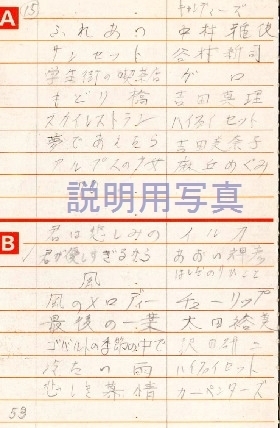 A
(15) キャンディーズ
ふれあい 中村雅俊
サンセット 谷村新司
学生街の喫茶店 ガロ
もどり橋 吉田真理
スカイレストラン ハイファイセット
夢で
アルプスの 麻丘めぐみ
説明用写真
B
君は悲しみの イルカ
君が優しすぎるから あおい輝彦
風 はしだのりひこ
風のメロディー チューリップ
最後の一葉 太田裕美
コバルトの季節の中で 沢田研二
冷たい雨 ハイファイセット
悲しき慕情 カーペンターズ
59